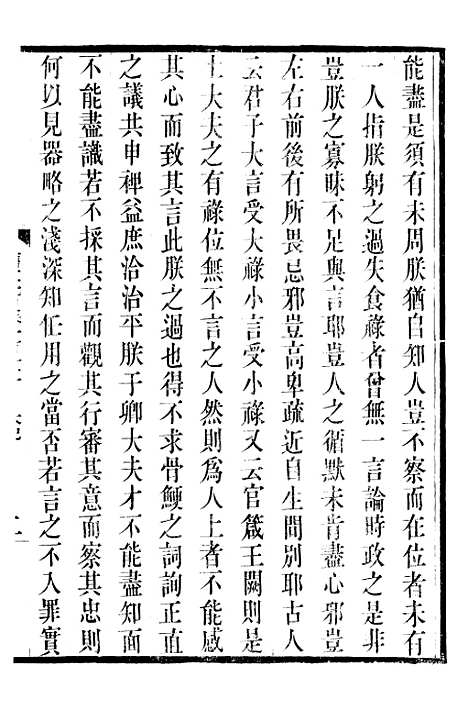 能盡是須有未周朕猶自知人豈不察而在位者未有
一人指朕躬之過失食祿者曾無一言論時政之是非
豈朕之寡昧不足與言耶豈人之循默未肯盡心邪豈
左右前後有所畏忌邪豈高卑疏近自生間別耶古人
云君子大言受大祿小言受小祿又云官箴王闕則是
士大夫之有祿位無不言之人然則為人上者不能感
其心而致其言此朕之過也得不求骨鯁之詞詢正直
之議共申裨益庶洽治平朕于卿大夫才不能盡知面
不能盡識若不採其言而觀其行審其意而察其忠則
何以見器略之淺深知任用之當否若言之不入罪實